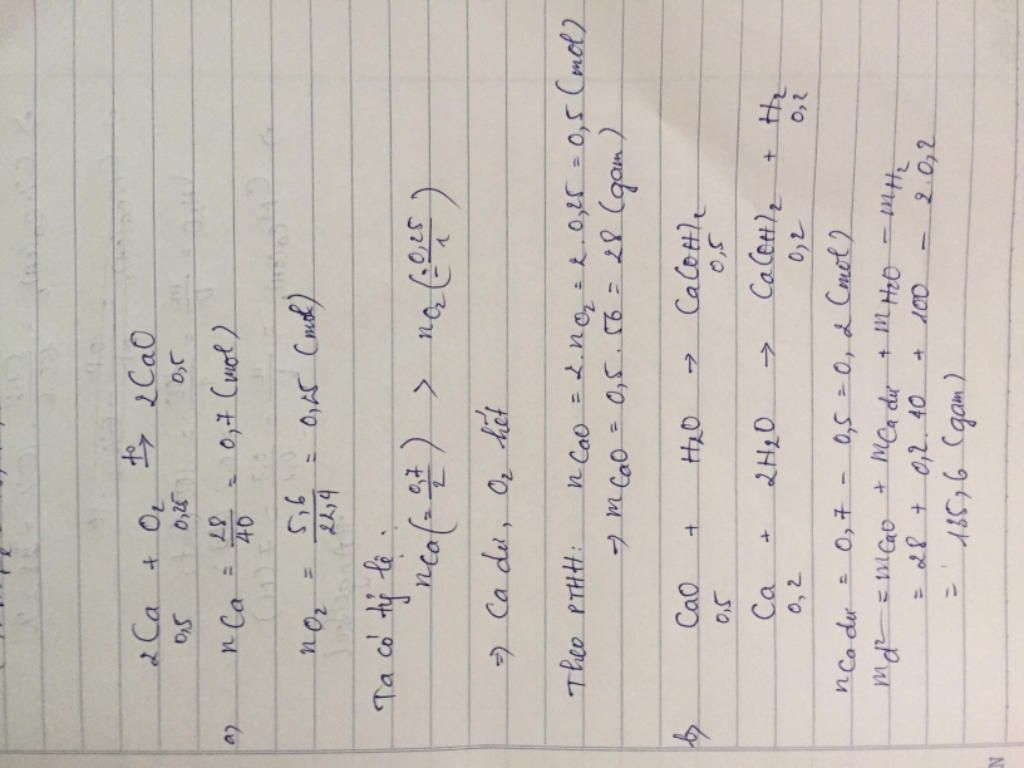 2Ca + O₂ t⁰→ 2CaO
0,5 0,25 0,5
a) nCa = 28/40 = 0,7 (mol)
nO₂ = 5,6/22,4 = 0,25 (mol)
Ta có tỷ lệ:
nCa (= 0,7/2) > nO₂ (= 0,25/1)
⇒ Ca dư, O₂ hết
Theo PTHH: nCaO = 2.nO₂ = 2.0,25 = 0,5 (mol)
→ mCaO = 0,5.56 = 28 (gam)
b) CaO + H₂O → Ca(OH)₂
0,5 0,5
Ca + 2H₂O → Ca(OH)₂ + H₂
0,2 0,2 0,2
nCa dư = 0,7 - 0,5 = 0,2 (mol)
md² = mCaO + mCa dư + mH₂O - mH₂
= 28 + 0,2.40 + 100 - 2.0,2
= 135,6 (gam)
N